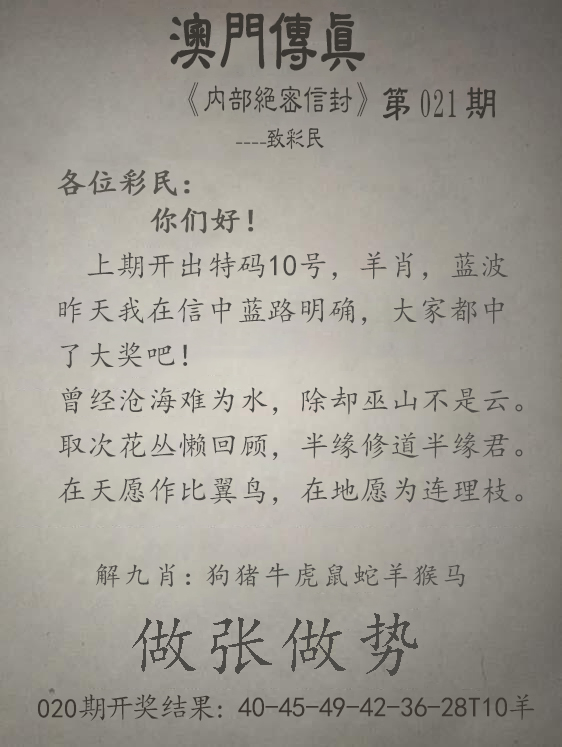 澳門傳眞
《内部絕密信封》第021期
----致彩民
各位彩民：
你们好！
上期开出特码10号，羊肖，蓝波
昨天我在信中蓝路明确，大家都中
了大奖吧！
曾经沧海难为水，除却巫山不是云。
取次花丛懒回顾，半缘修道半缘君。
在天愿作比翼鸟，在地愿为连理枝。
解九肖：狗猪牛虎鼠蛇羊猴马
做张做势
020期开奖结果：40-45-49-42-36-28T10羊